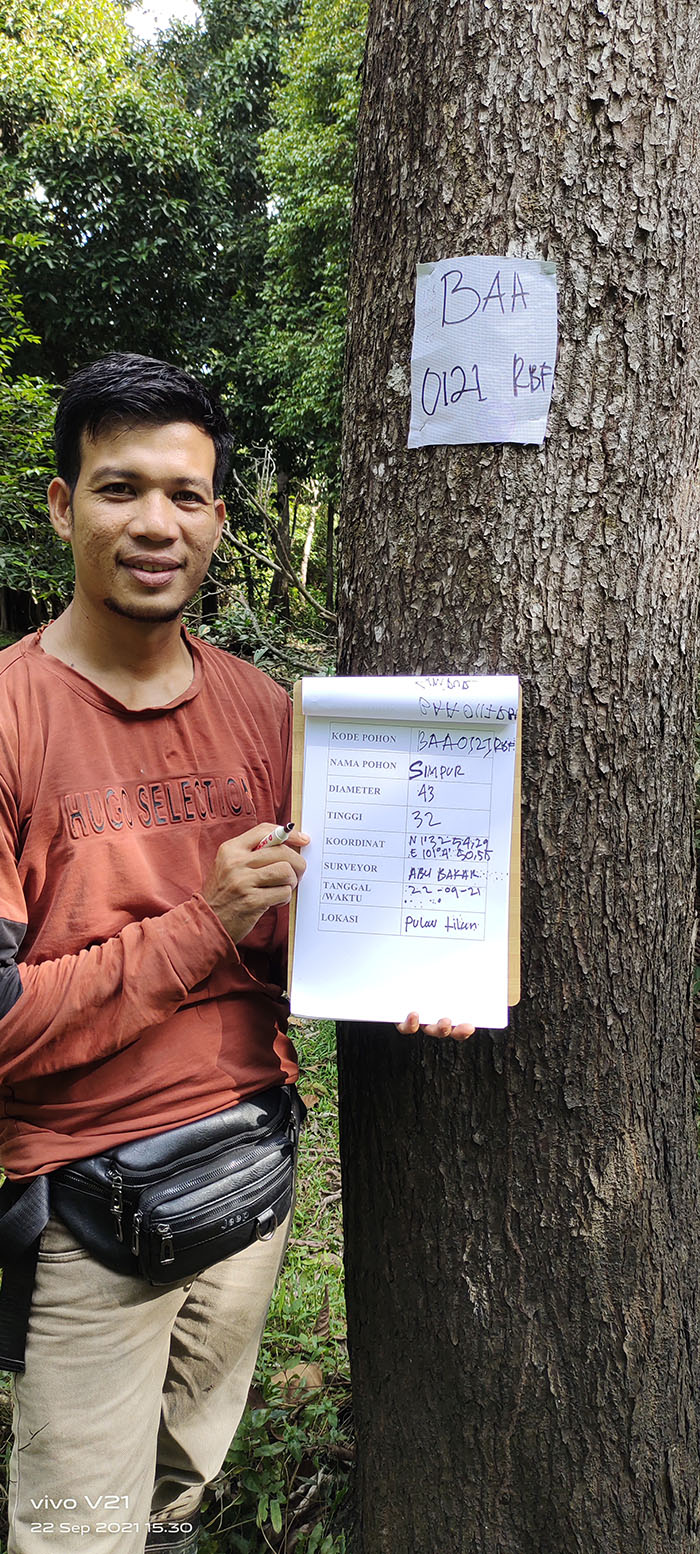 BAA
0121 RBF
HUGO SELECTION
KODE POHON BAA0121RBF
NAMA POHON SIMPUR
DIAMETER 43
TINGGI 32
KOORDINAT N 1°32'54,29
E 101°4'50,55
SURVEYOR ABU BAKAR
TANGGAL 22-09-21
/WAKTU
LOKASI Pulau tilan
Jeep
vivo V21
22 Sep 2021 15.30